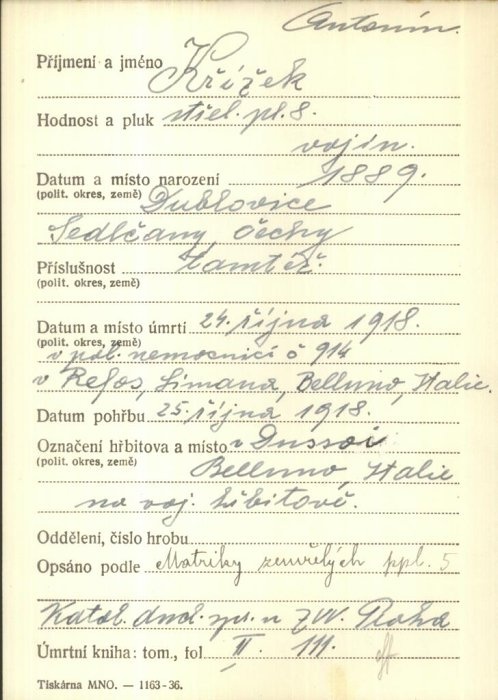 Antonín.
Příjmení a jméno Křížek
Hodnost a pluk střel. pl. 8.
vojín.
Datum a místo narození 1889.
(polit. okres, země) Dublovice
Sedlčany, Čechy
Příslušnost tamtéž.
(polit. okres, země)
Datum a místo úmrtí 24. října 1918.
(polit. okres, země)
v pol. nemocnici č 914
v Refos, Limana, Belluno, Italie.
Datum pohřbu 25. října 1918.
Označení hřbitova a místo v Dussoi
(polit. okres, země) Belluno, Italie
na voj. hřbitově.
Oddělení, číslo hrobu
Opsáno podle Matriky zemřelých ppl. 5
Katol. duch. spr. u ZVV. Praha
Úmrtní kniha: tom., fol. II. 111.
Tiskárna MNO. — 1163-36.